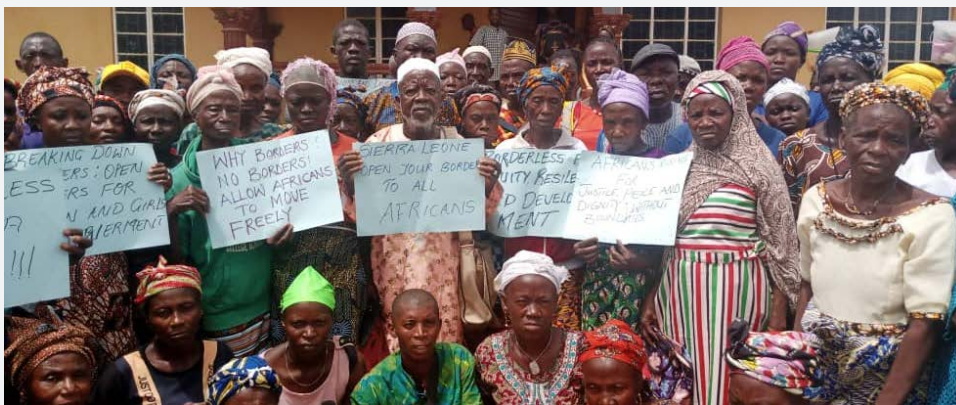 BREAKING DOWN
ERS: OPEN
LESS
RS FOR
N AND GIRLS
!!!
WHY BORDERS?
NO BORDERS!
ALLOW AFRICANS
TO MOVE
FREELY
SIERRA LEONE
OPEN YOUR BORDER
TO ALL
AFRICANS
BORDERLESS
RESILE
D DEVELO
MENT
AFRICANS
FOR
JUSTICE PEACE AND
DIGNITY WITHOUT
BOUNDARIES
JUST